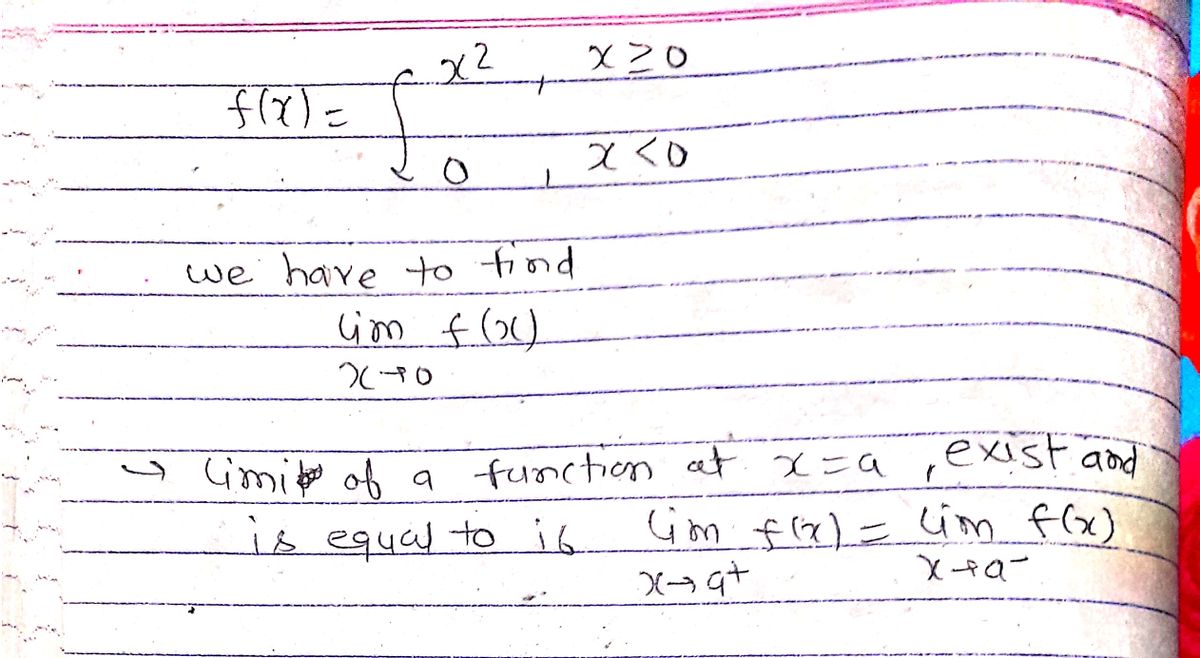 f(x) = { x² , x ≥ 0
0 , x < 0
we have to find
lim f(x)
x→0
→ limit of a function at x = a , exist and
is equal to if lim f(x) = lim f(x)
x→a⁺ x→a⁻